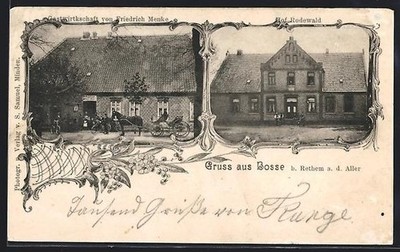 Gastwirtschaft von Friedrich Menke
Hof Rodewald
Photogr. u. Verlag v. S. Samuel, Minden.
Gruss aus Bosse b. Rethem a. d. Aller
Tausend Grüße von